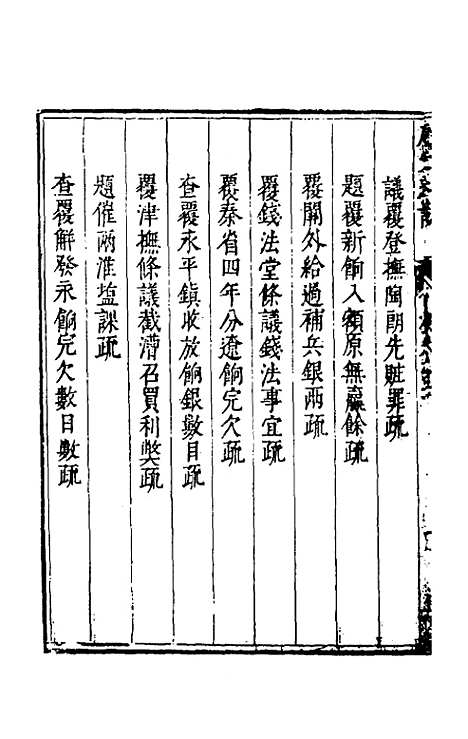 議覆登撫陶朗先贓罪疏
題覆新餉入額原無羸餘疏
覆關外給過補兵銀兩疏
覆錢法堂條議錢法事宜疏
覆秦省四年分遼餉完欠疏
查覆永平鎮收放餉銀數目疏
覆津撫條議截漕召買利獘疏
題催兩淮塩課疏
查覆解發永餉完欠數目數疏